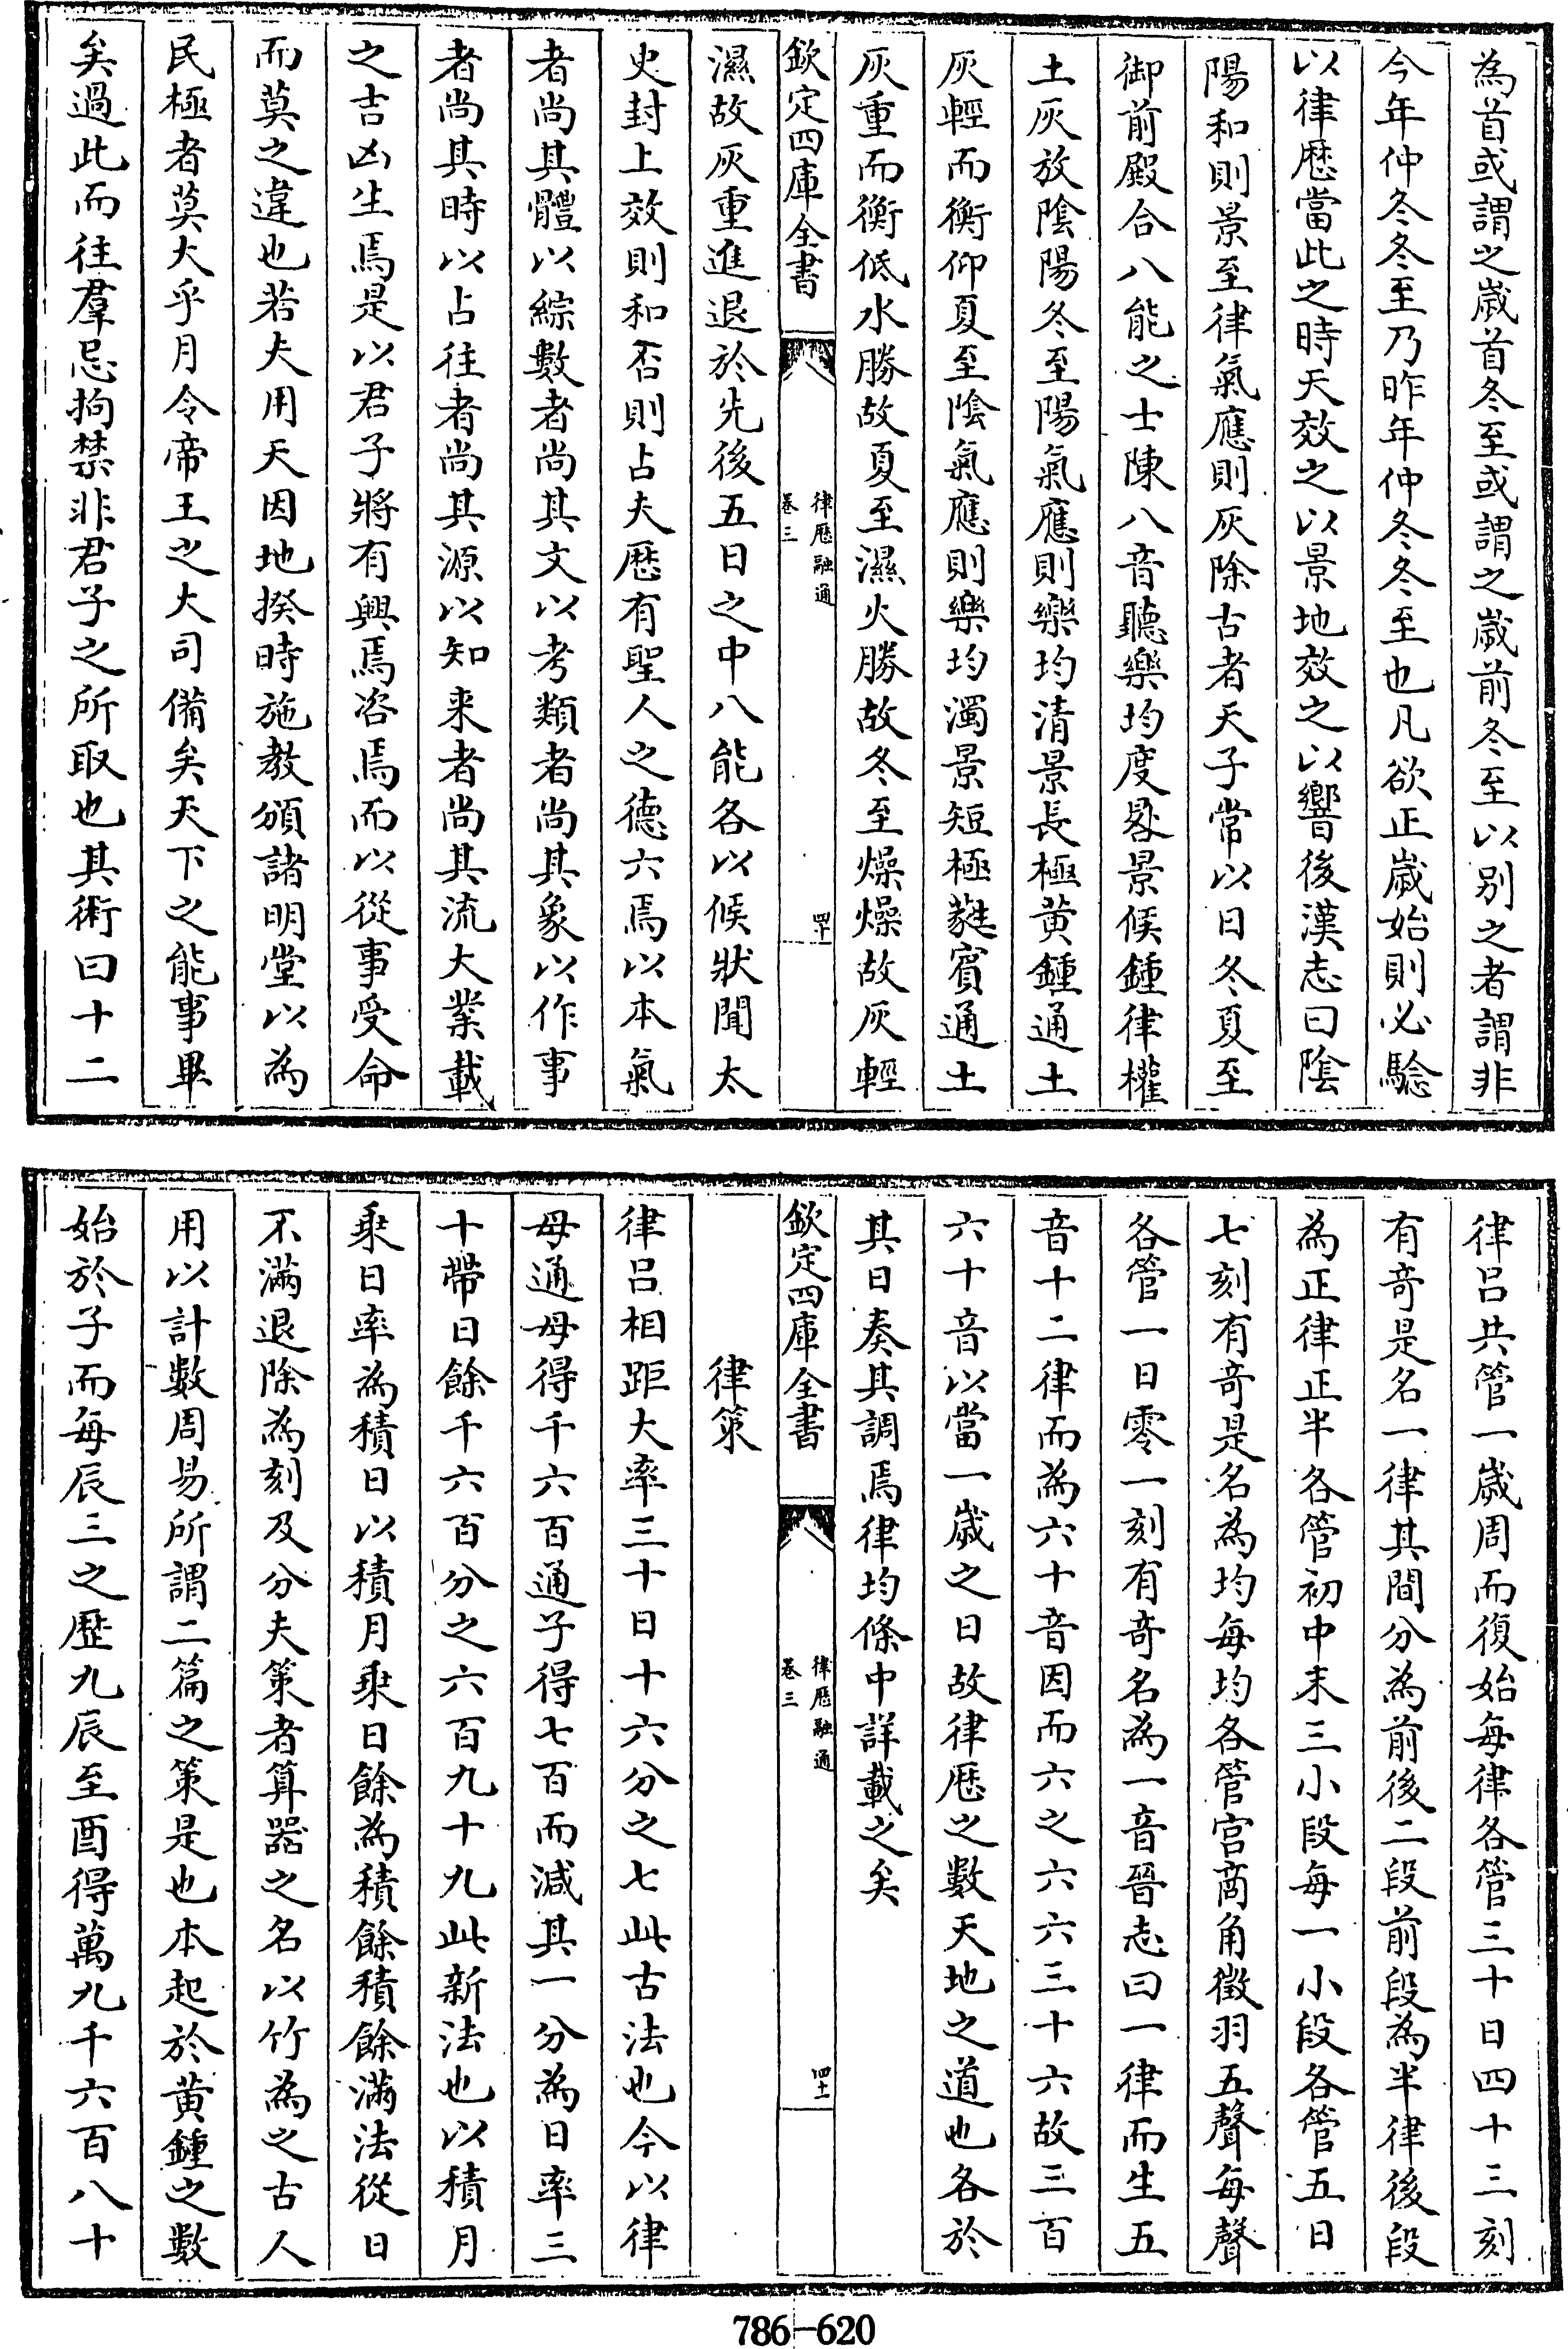 為首或謂之歲首冬至或謂之歲前冬至以別之者謂非
今年仲冬冬至乃昨年仲冬冬至也凡欲正歲始則必驗
以律厯當此之時天效之以景地效之以響後漢志曰陰
陽和則景至律氣應則灰除古者天子常以日冬夏至
御前殿合八能之士陳八音聽樂均度晷景候鍾律權
土灰放陰陽冬至陽氣應則樂均清景長極黄鍾通土
灰輕而衡仰夏至陰氣應則樂均濁景短極蕤賓通土
灰重而衡低水勝故夏至濕火勝故冬至燥燥故灰輕
欽定四庫全書
律厯融通
卷三
四十一
濕故灰重進退於先後五日之中八能各以候狀聞太
史封上效則和否則占夫厯有聖人之德六焉以本氣
者尚其體以綜數者尚其文以考類者尚其象以作事
者尚其時以占往者尚其源以知来者尚其流大業載
之吉凶生焉是以君子將有興焉咨焉而以從事受命
而莫之違也若夫用天因地揆時施教頒諸明堂以為
民極者莫大乎月令帝王之大司備矣天下之能事畢
矣過此而往羣忌拘禁非君子之所取也其術曰十二
律吕共管一歲周而復始每律各管三十日四十三刻
有奇是名一律其間分為前後二段前段為半律後段
為正律正半各管初中末三小段每一小段各管五日
七刻有奇是名為均每均各管宫商角徵羽五聲每聲
各管一日零一刻有奇名為一音晉志曰一律而生五
音十二律而為六十音因而六之六六三十六故三百
六十音以當一歲之日故律厯之數天地之道也各於
其日奏其調焉律均條中詳載之矣
欽定四庫全書
律厯融通
卷三
四十一
律策
律吕相距大率三十日十六分之七此古法也今以律
母通母得千六百通子得七百而減其一分為日率三
十帶日餘千六百分之六百九十九此新法也以積月
乘日率為積日以積月乘日餘為積餘積餘滿法從日
不滿退除為刻及分夫策者算器之名以竹為之古人
用以計數周易所謂二篇之策是也本起於黄鍾之數
始於子而每辰三之歷九辰至酉得萬九千六百八十
786-620